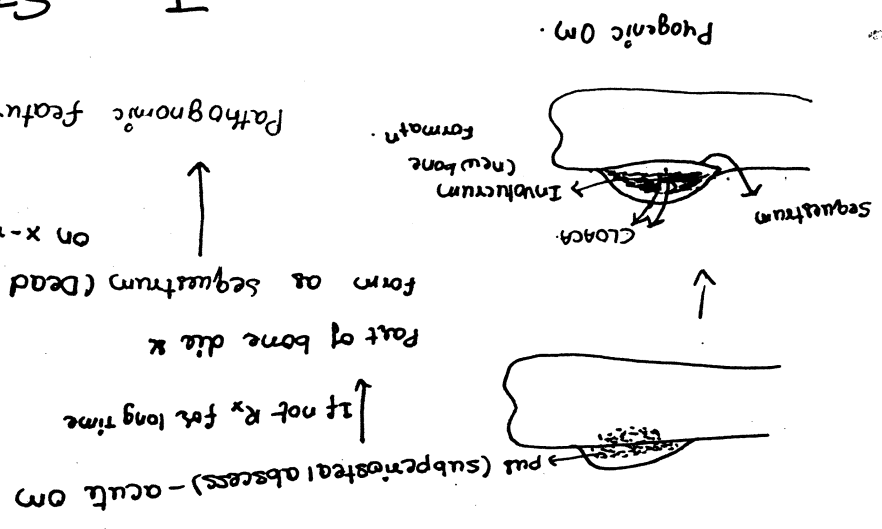 pus (subperiosteal abscess) - acute OM
If not Rx for long time
Part of bone die &
form as sequestrum (Dead
on x-
Pathognomic featu
CLOACA.
Sequestrum
Involucrum
(new bone
formatⁿ.
Pyogenic OM.